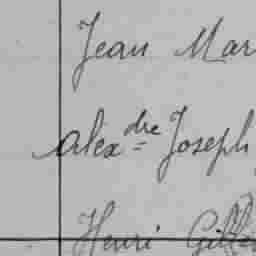 Jean Mar
Alexdre Joseph
Henri Gille